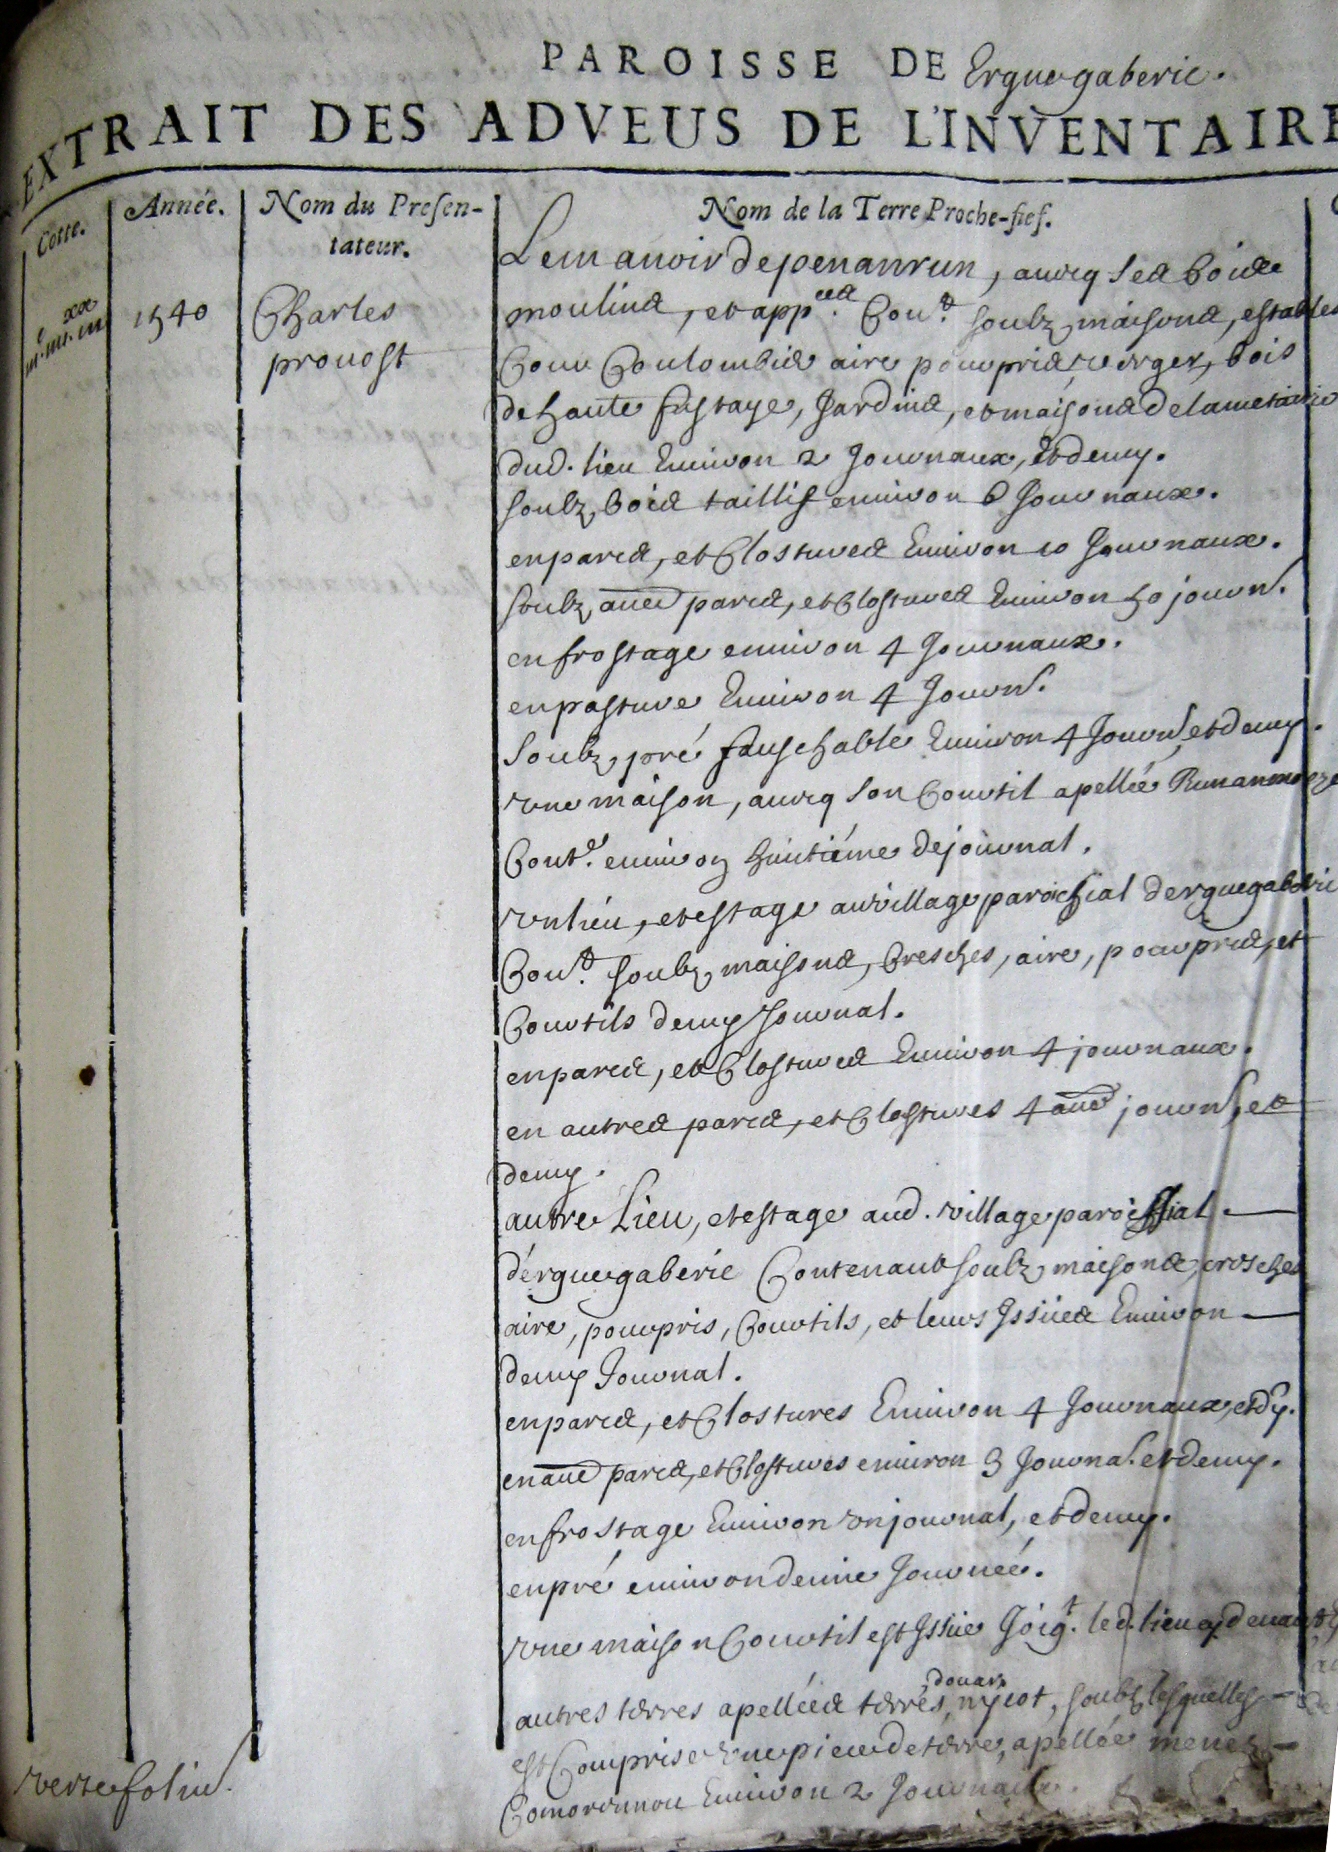 PAROISSE DE Erguegaberic.
EXTRAIT DES ADVEUS DE L'INVENTAIRE
Cotte.
Année.
Nom du Presen-
tateur.
Nom de la Terre Proche-fief.
1540
Charles
prouost
Le manoir de penanrun, aueq ses bois
moulins, et app.ces Con.t soubz maisons, estables
Cour Coulombier aire pourpris verger, bois
de haute fustaye, Jardins, et maisons de la metairie
dud. lieu Enuiron 2 Journaux, et demy.
soubz bois taillis enuiron 6 Journaux.
en parcs, et Clostures Enuiron 10 Journaux.
soubz aues parcs, et Clostures Enuiron 50 journ.
en frostage enuiron 4 Journaux.
en pasture Enuiron 4 Journ.
soubz pré fauschable Enuiron 4 Journ. et demy.
vne maison, aueq son Courtil apellée
Cont.t enuiron huictiéme de journal.
vn lieu, et estage au village paroichial d'erguegaberic
Con.t soubz maisons, Cresches, aire, pourpris, et
Courtils demy Journal.
en parcs, et Clostures Enuiron 4 journaux.
en autres parcs, et Clostures 4 aues journ. et
demy.
autre Lieu, et estage aud. village paroissial
d'érguegaberic Contenant soubz maisons, cresches
aire, pourpris, Courtils, et leurs Issües Enuiron
demy Journal.
en parcs, et Clostures Enuiron 4 Journaux, et dy.
en aues parcs, et Clostures enuiron 3 Journa. et demy.
en frostage Enuiron vn journal, et demy.
en pré enuiron demie Journée.
vne maison Courtil et Issüe Joig.t led. lieu cy deuant
douar
autres terres apellées terres nycot, soubz lesquelles
est Comprise vne piece de terre, apellée menez
Enuiron 2 Journaux.
verte folium.